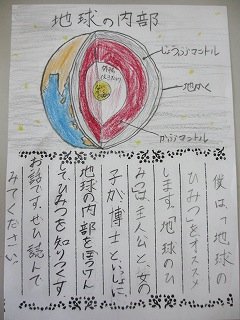 地球の内部
じょうぶマントル
地かく
かぶマントル
外核
僕は、「地球の
ひみつ」をオススメ
します。「地球のひ
みつ」は主人公と、女の
子が、博士といっしょに、
地球の内部をぼうけん
してひみつを知りつくす
お話です。ぜひ読んで
みてください。